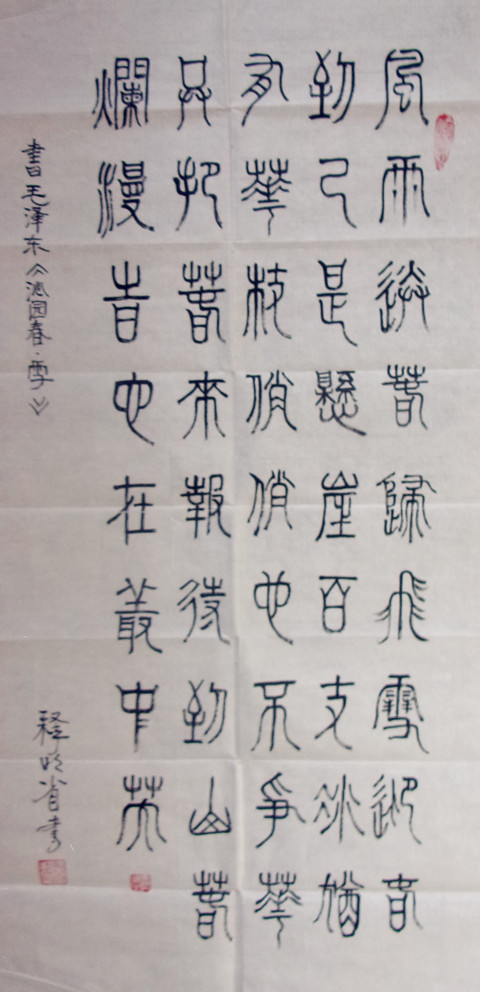 風雨送萅歸飛雪迎旾
到已是懸崖百丈冰猶
有華枝俏俏也不爭華
只把萅來報待到山萅
爛漫旹也在叢中笑
書毛泽东《沁园春·雪》
释 省書